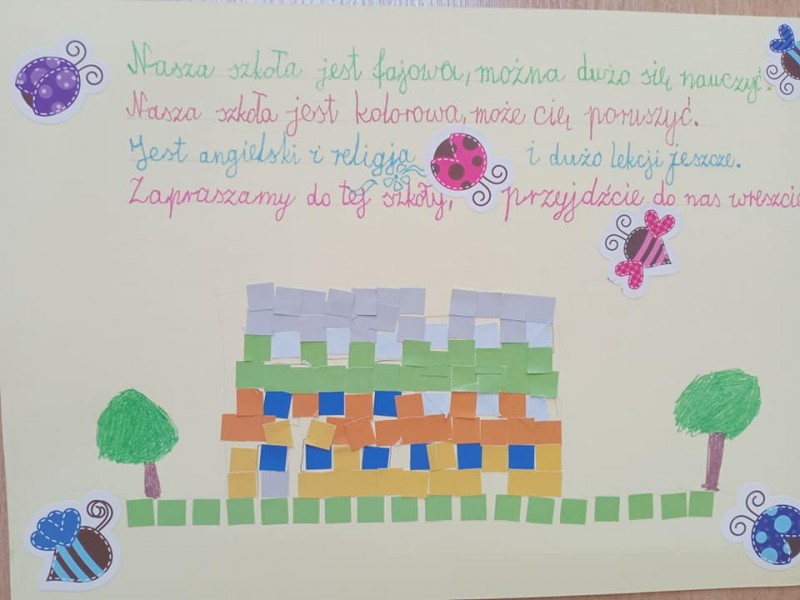 Nasza szkoła jest fajowa, można dużo się nauczyć.
Nasza szkoła jest kolorowa, może cię poruszyć.
Jest angielski i religja i dużo lekcji jeszcze.
Zapraszamy do tej szkoły, przyjdźcie do nas wreszcie